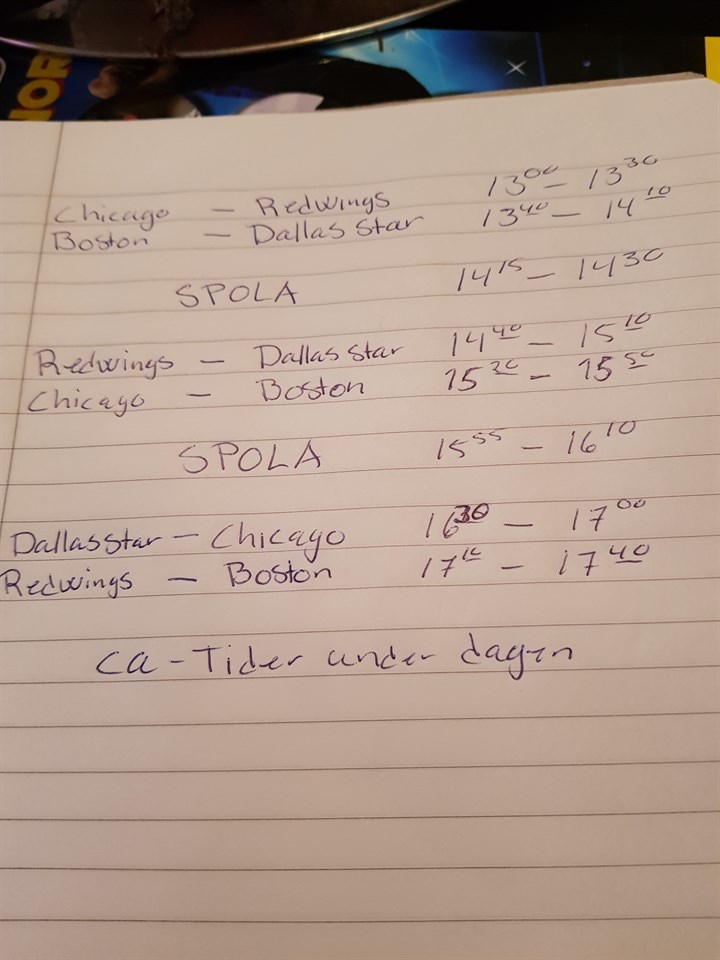 NOR
Chicago — Redwings 13⁰⁰ — 13³⁰
Boston — Dallas Star 13⁴⁰ — 14¹⁰
SPOLA 14¹⁵ — 14³⁰
Redwings — Dallas Star 14⁴⁰ — 15¹⁰
Chicago — Boston 15²⁰ — 15⁵⁰
SPOLA 15⁵⁵ — 16¹⁰
Dallas Star — Chicago 16³⁰ — 17⁰⁰
Redwings — Boston 17¹⁰ — 17⁴⁰
ca - Tider under dagen